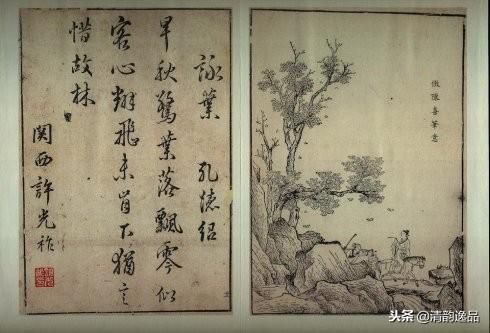 倣陳喜筆意
詠葉 孔德紹
早秋驚葉落飄零似
客心翻飛未肯下猶言
惜故林
関西許光祚
头条 @清韵逸品